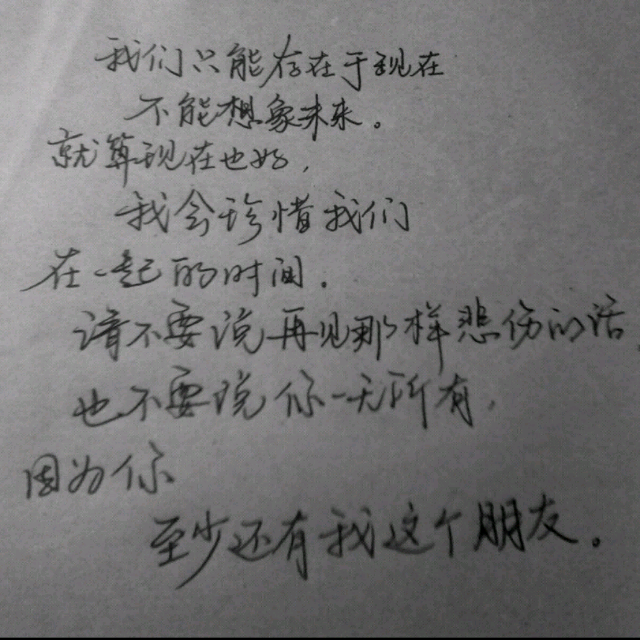 我们只能存在于现在
不能想象未来。
就算现在也好，
我会珍惜我们
在一起的时间。
请不要说再见那样悲伤的话，
也不要说你一无所有，
因为你
至少还有我这个朋友。